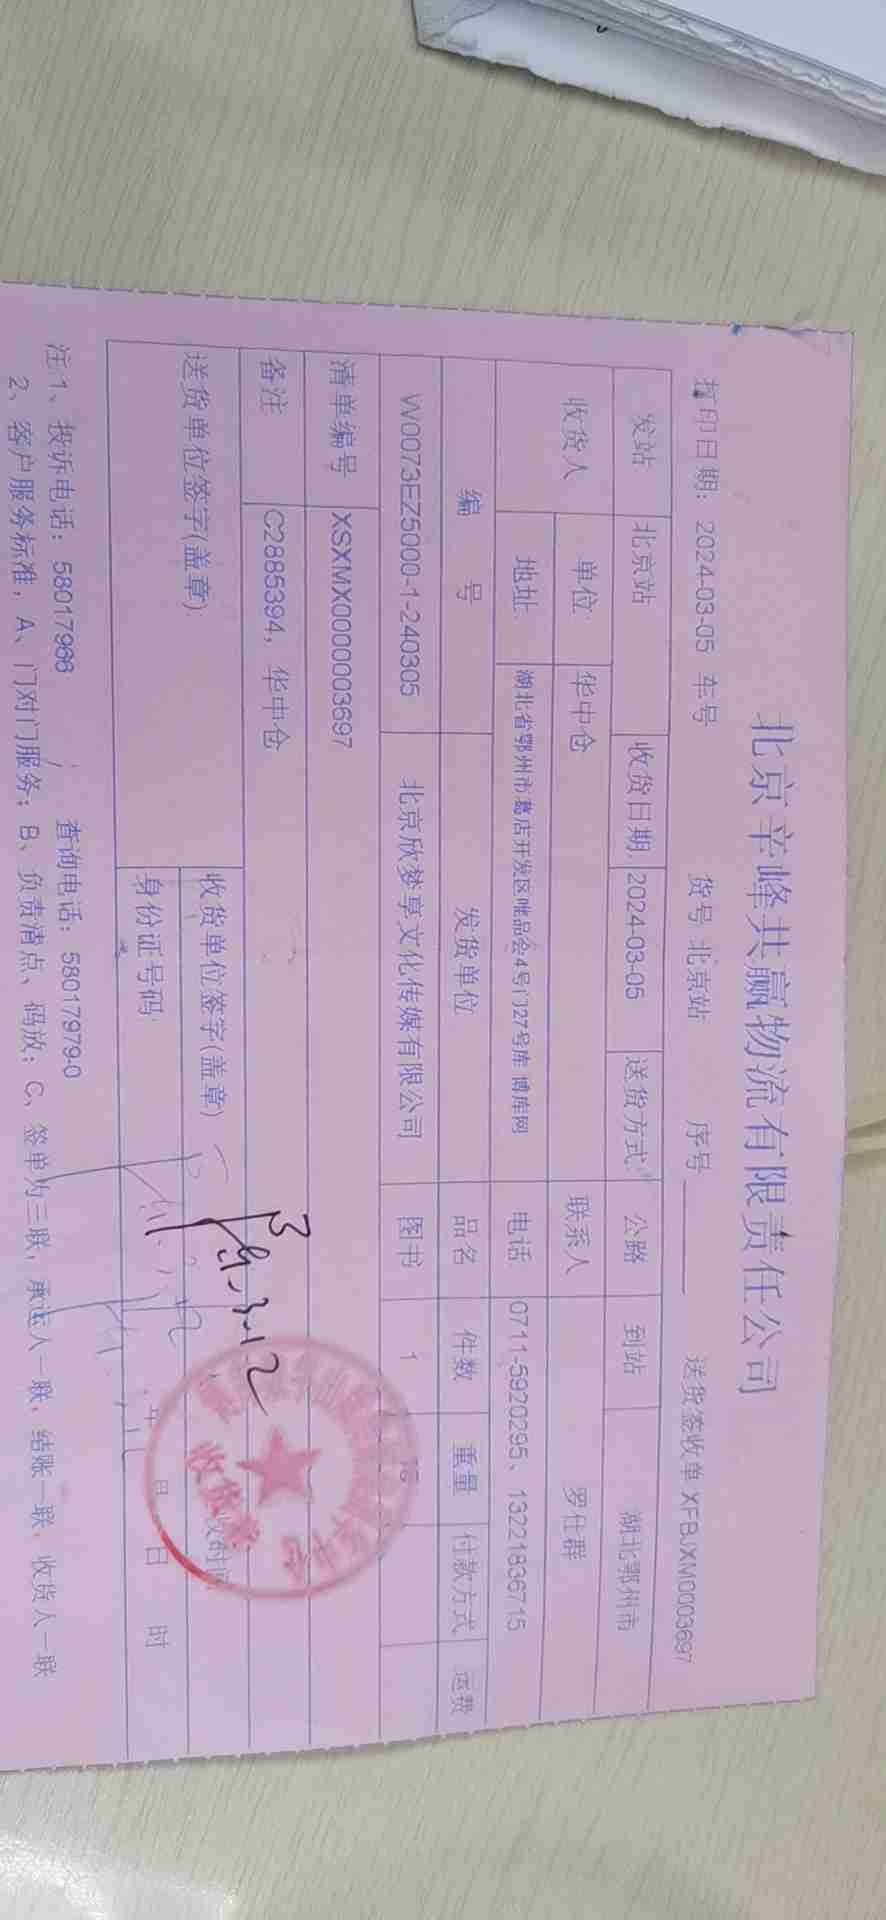 北京辛峰共赢物流有限责任公司
打印日期: 2024-03-05 车号 货号 北京站 序号 送货签收单 XFBJXM0003697
发站 北京站 收货日期 2024-03-05 送货方式 公路 到站 湖北鄂州市
收货人 单位 华中仓 联系人 罗仕群
地址 湖北省鄂州市葛店开发区唯品会4号门27号库 博库网 电话 0711-5920295、13221836715
编 号 发货单位 品名 件数 重量 付款方式 运费
W0073EZ5000-1-240305 北京欣梦享文化传媒有限公司 图书 1
清单编号 XSXMX0000003697
备注 C2885394, 华中仓
送货单位签字(盖章) 收货单位签字(盖章)
3.12
收时间
身份证号码: 年 月 日 时
注1、投诉电话: 58017988 查询电话: 58017979-0
2、客户服务标准, A、门对门服务; B、负责清点、码放; C、签单为三联, 承运人一联, 结账一联, 收货人一联